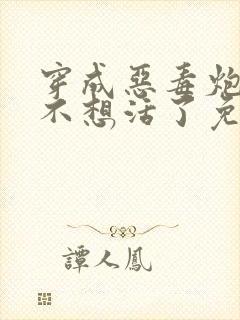 穿成惡毒炮
不想活了免
譚人鳳